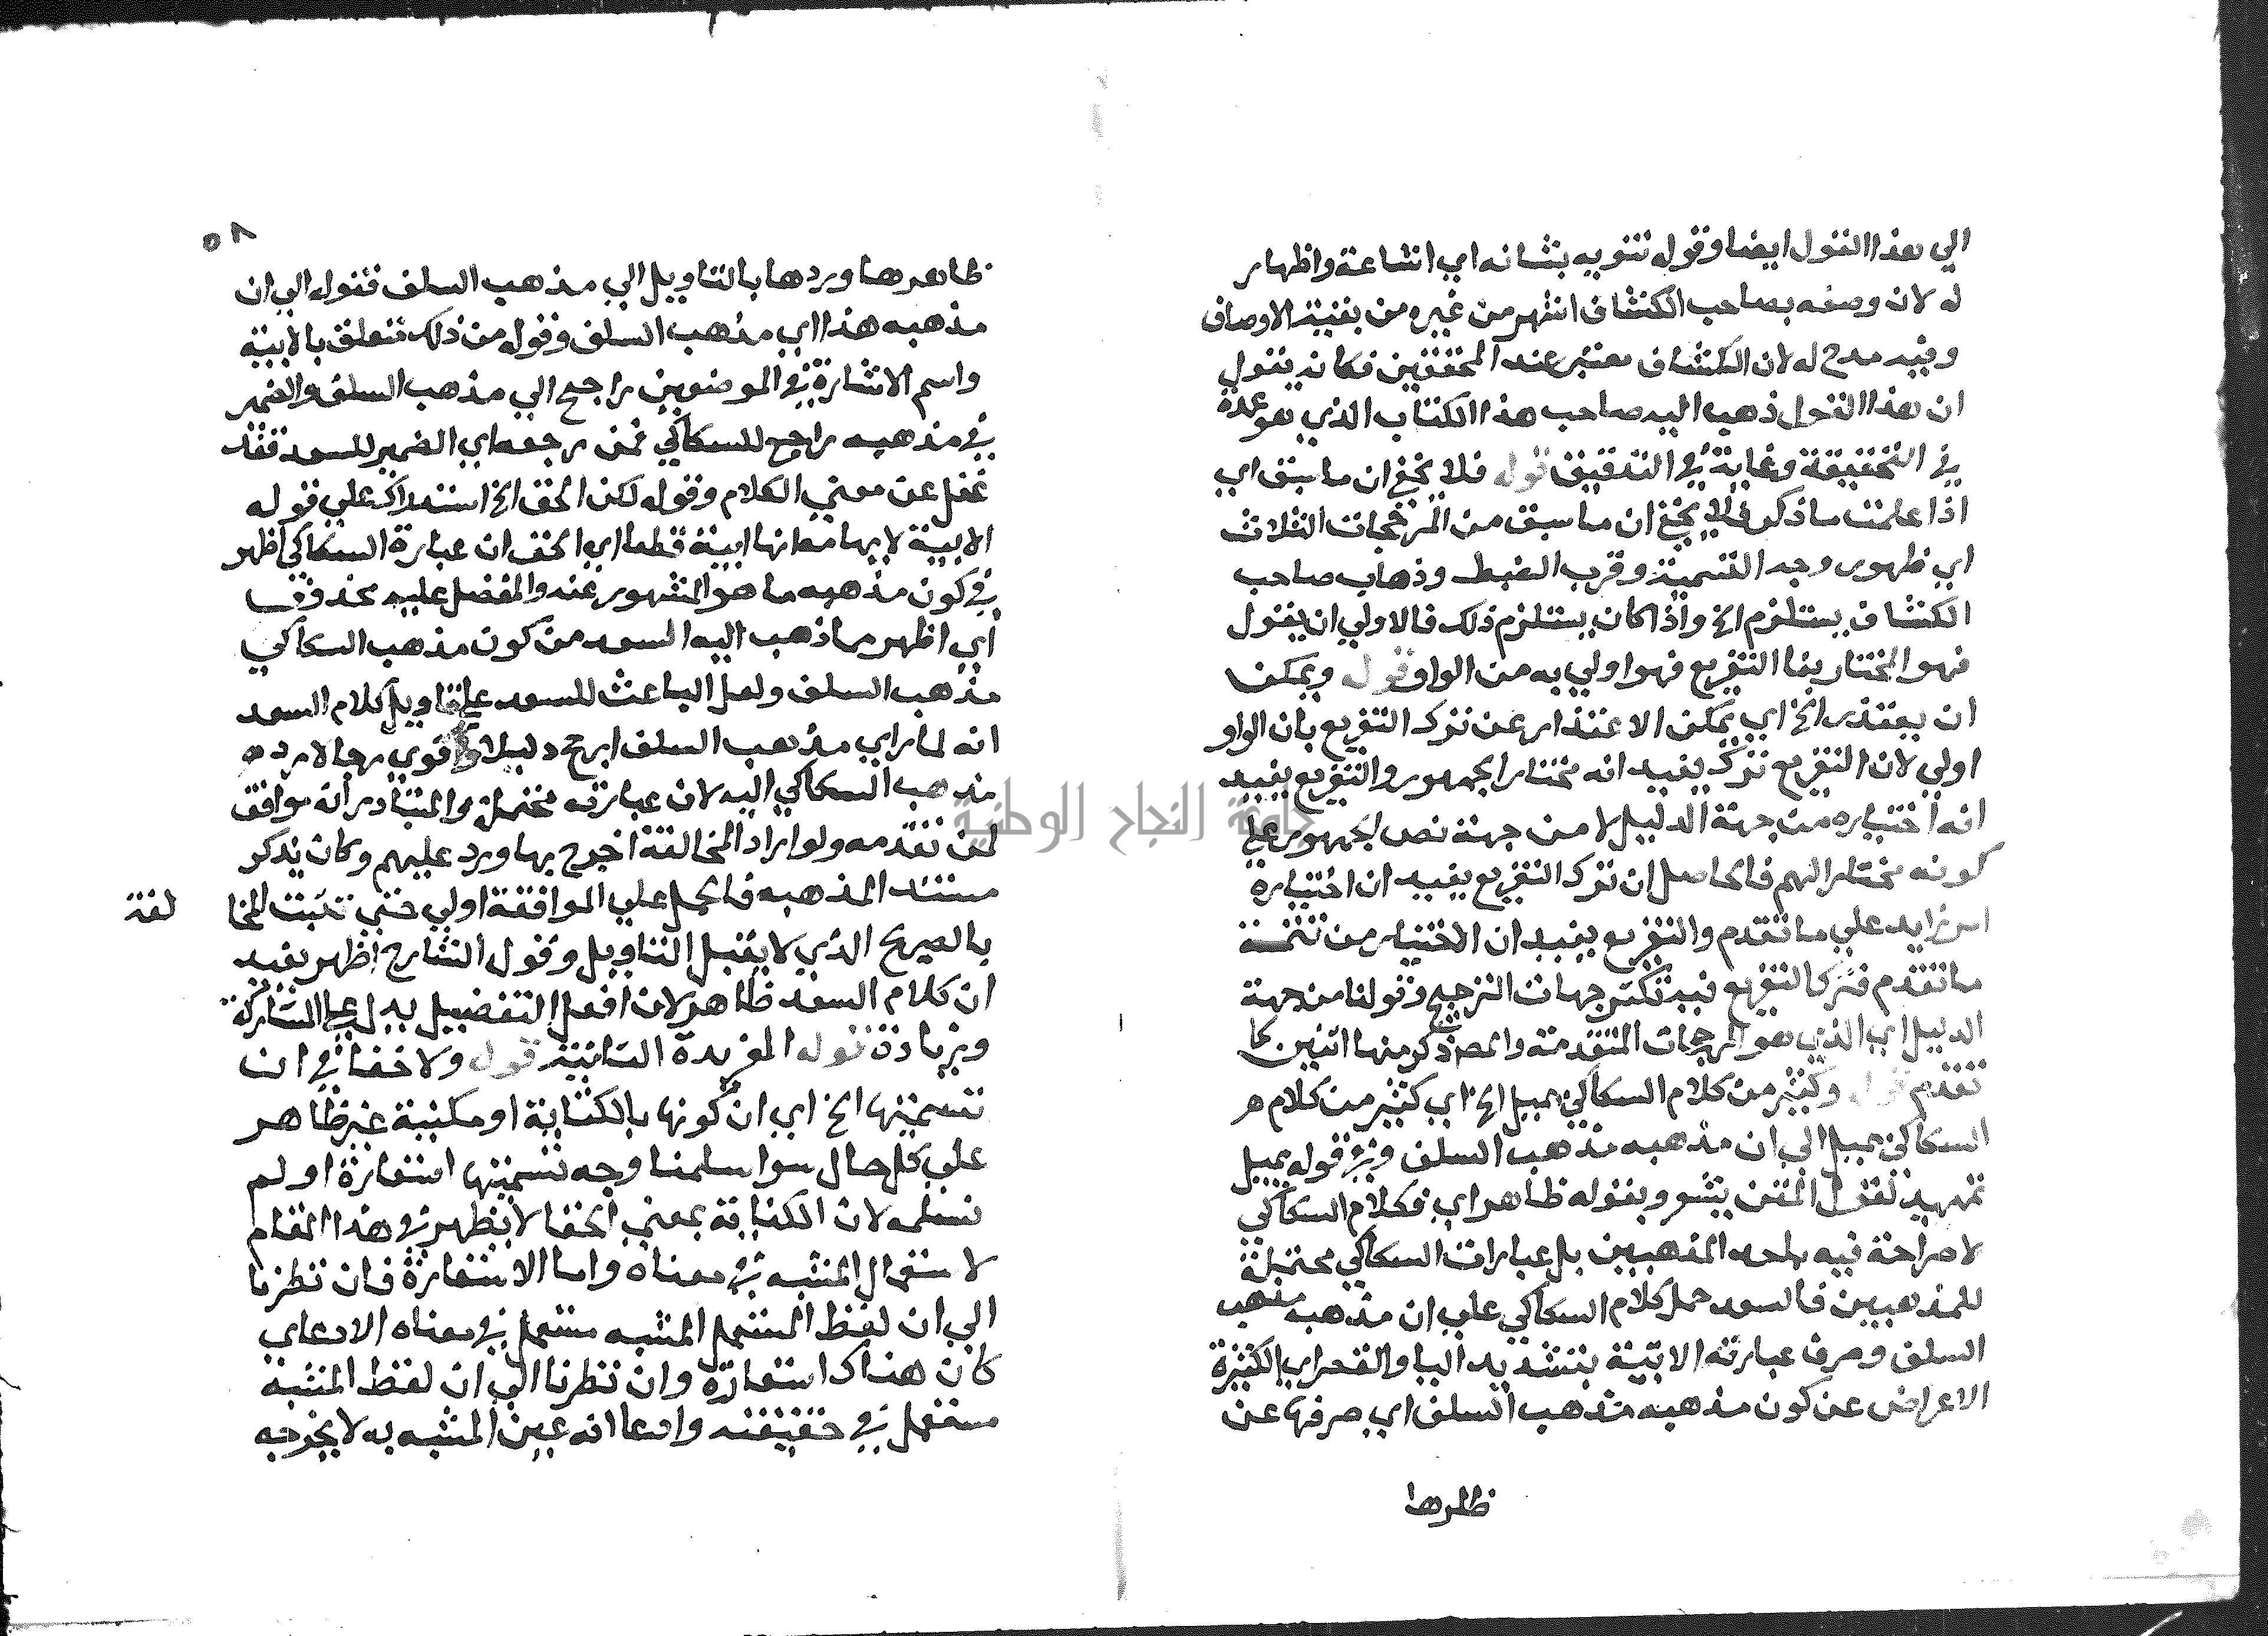 الي هذا القول ايضا وقوله تنويه بشانه اي اشاعة واظهار
له لان وصفه بصاحب الكشاف اشهر من غيره من بقية الاوصاف
وفيه مدح له لان الكشاف معتبر عند المحققين فكانه يقول
ان هذا القول ذهب اليه صاحب هذا الكتاب الذي هو عمدة
في التحقيقة وغاية في التدقيق قوله فلا يخفي ان ما سبق اي
اذا علمت ما ذكر فلا يخفي ان ما سبق من المرجحات الثلاث
اي ظهور وجه التسمية وقرب الضبط وذهاب صاحب
الكشاف يستلزم الخ واذا كان يستلزم ذلك فالاولي ان يقول
فهو المختار بفا التفريع فهو اولي به من الواو قوله ويمكن
ان يعتذر الخ اي يمكن الاعتذار عن ترك التفريع بان الواو
اولي لان التفريع تركه يفيد انه مختار الجمهور والتفريع يفيد
انه اختياره من جهة الدليل لا من جهة نص الجمهور علي
كونه مختارا لهم فالحاصل ان ترك التفريع يفيد ان اختياره
امر زايد علي ما تقدم والتفريع يفيد ان اختياره من تتمة
ما تقدم فترك التفريع فيه تكثير جهات الترجيح وقولنا من جهة
الدليل اي الذي هو المرجحات المتقدمة والمص ذكر منها اثنين كما
تقدم قوله وكثير من كلام السكاكي يميل الخ اي كثير من كلام
السكاكي يميل الي ان مذهبه مذهب السلف وفي قوله يميل
تمهيد لقول المتن يشعر وبقوله ظاهر اي فكلام السكاكي
لا صراحة فيه باحد المذهبين بل عبارات السكاكي محتملة
للمذهبين فالسعد حمل كلام السكاكي علي ان مذهبه مذهب
السلف وصرف عبارته الابيّة بتشديد اليا والقصر اي الكثيرة
الاعراض عن كون مذهبه مذهب السلف اي صرفها عن
ظاهرها
٥٨
ظاهرها وردها بالتاويل الي مذهب السلف فقوله الي ان
مذهبه هذا اي مذهب السلف وقوله من ذلك متعلق بالابية
واسم الاشارة في الموضعين راجع الي مذهب السلف والضمير
في مذهبه راجع للسكاكي فمن رجعه اي الضمير للسعد فقد
غفل عن معني الكلام وقوله لكن الحق الخ استدراك علي قوله
الابية لايهامه انها ابية قطعا اي الحق ان عبارة السكاكي اظهر
في كون مذهبه ما هو المشهور عنه والمفضل عليه محذوف
اي اظهر مما ذهب اليه السعد من كون مذهب السكاكي
مذهب السلف ولعل الباعث للسعد علي تاويل كلام السعد
انه لما راي مذهب السلف ارجح دليلا واقوي رجالا رده
مذهب السكاكي اليه لان عبارته محتملة والمتبادر انه موافق
لمن تقدمه ولو اراد المخالفة لخرج بها ورد عليهم وكان يذكر
مستند المذهبه فالحمل علي الموافقة اولي حتي تثبت المخا لفة
بالصريح الذي لا يقبل التاويل وقول الشارح اظهر يفيد
ان كلام السعد ظاهر لان افعل التفضيل يدل علي المشاركة
وزيادة قوله المزيدة الثانية قوله ولا خفا في ان
تسميتها الخ اي ان كونها بالكناية او مكنية غير ظاهر
علي كل حال سوا سلمنا وجه تسميتها استعارة او لم
نسلمه لان الكناية بمعني الخفا لا يظهر في هذا المقام
لاستعمال المشبه في معناه واما الاستعارة فان نظرنا
الي ان لفظ المستعمل المشبه مستعمل في معناه الادعاي
كان هناك استعارة وان نظرنا الي ان لفظ المشبه
مستعمل في حقيقته وادعا انه عين المشبه به لا يخرجه
جامعة النجاح الوطنية